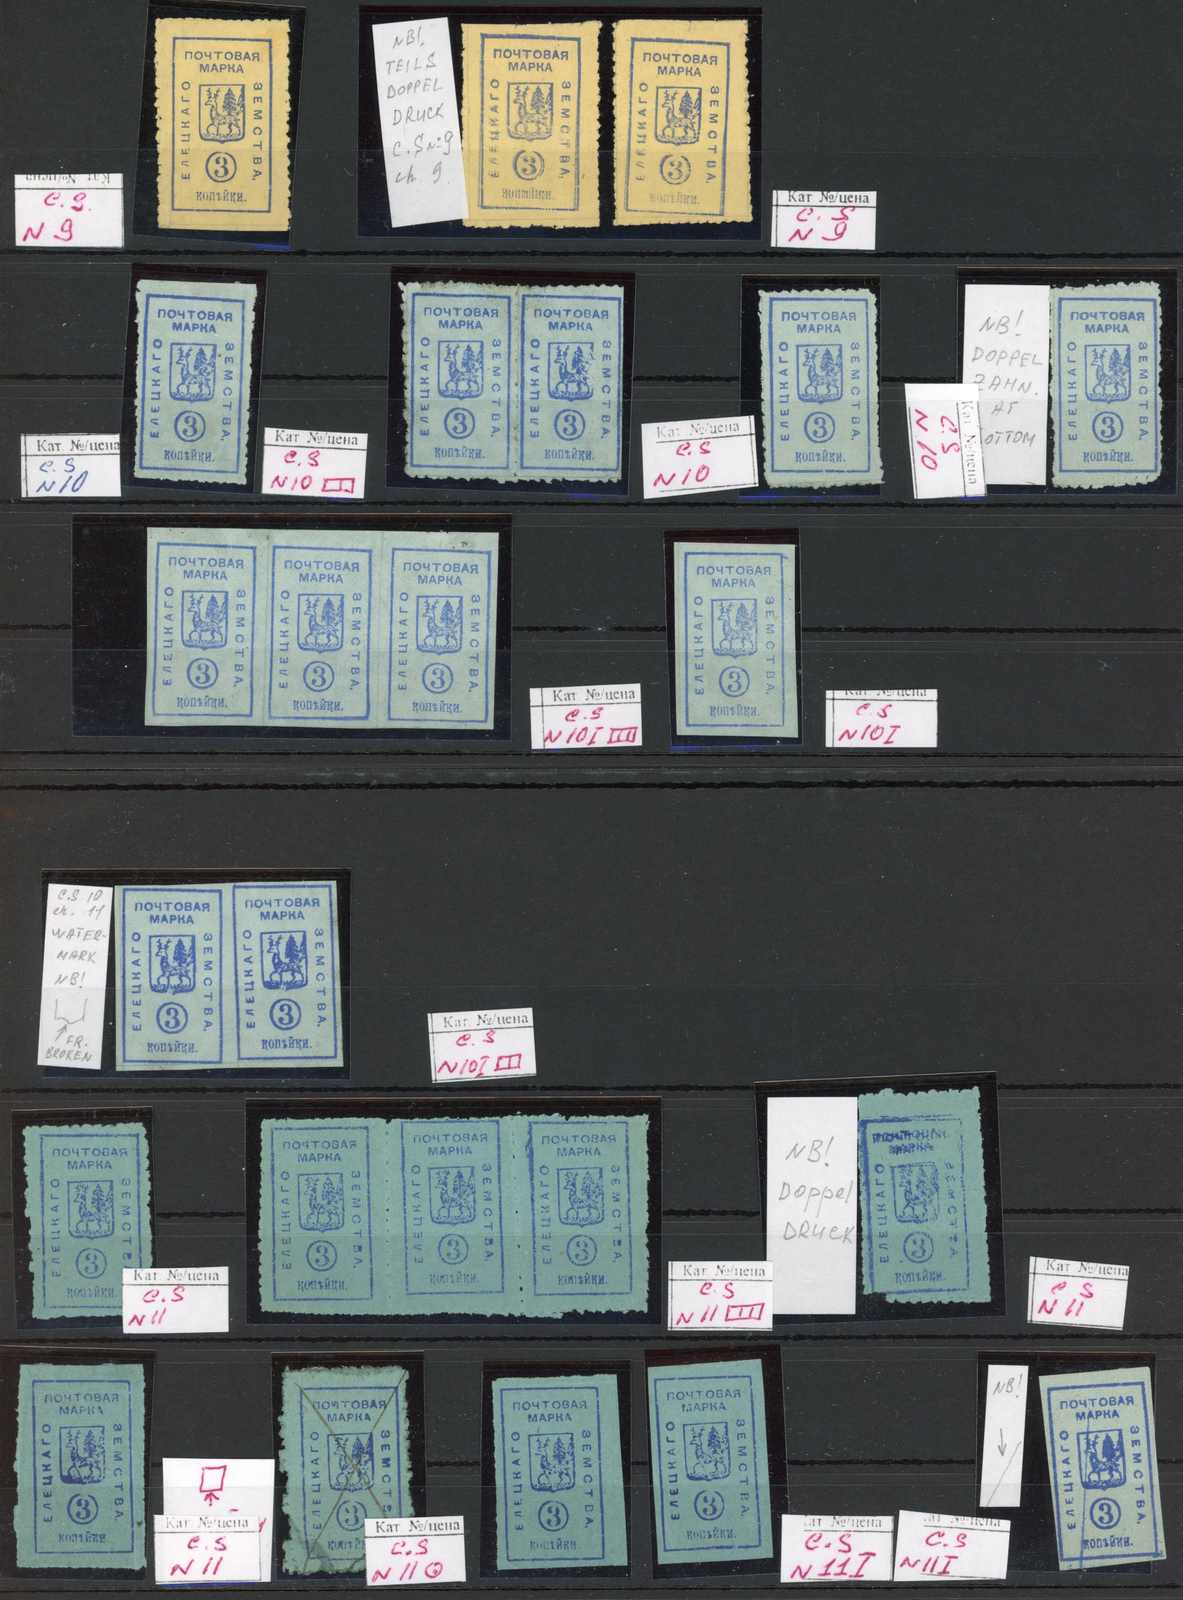 ПОЧТОВАЯ
МАРКА
ЕЛЕЦКАГО
ЗЕМСТВА.
3
КОПѢЙКИ.
Кат №/цена
C.S.
N 9
NB!
TEILS
DOPPEL
DRUCK
C.S№9
ch. 9.
ПОЧТОВАЯ
МАРКА
ЕЛЕЦКАГО
ЗЕМСТВА.
3
КОПѢЙКИ.
ПОЧТОВАЯ
МАРКА
ЕЛЕЦКАГО
ЗЕМСТВА.
3
КОПѢЙКИ.
Кат №/цена
C.S
N 9
Кат №/цена
C.S
N10
ПОЧТОВАЯ
МАРКА
ЕЛЕЦКАГО
ЗЕМСТВА.
3
КОПѢЙКИ.
Кат №/цена
C.S
N10
ПОЧТОВАЯ
МАРКА
ЕЛЕЦКАГО
ЗЕМСТВА.
3
КОПѢЙКИ.
ПОЧТОВАЯ
МАРКА
ЕЛЕЦКАГО
ЗЕМСТВА.
3
КОПѢЙКИ.
Кат №/цена
C.S
N10
ПОЧТОВАЯ
МАРКА
ЕЛЕЦКАГО
ЗЕМСТВА.
3
КОПѢЙКИ.
Кат №/цена
N 10
NB!
DOPPEL
ZAHN.
AT
OTTOM
ПОЧТОВАЯ
МАРКА
ЕЛЕЦКАГО
ЗЕМСТВА.
3
КОПѢЙКИ.
ПОЧТОВАЯ
МАРКА
ЕЛЕЦКАГО
ЗЕМСТВА.
3
КОПѢЙКИ.
ПОЧТОВАЯ
МАРКА
ЕЛЕЦКАГО
ЗЕМСТВА.
3
КОПѢЙКИ.
ПОЧТОВАЯ
МАРКА
ЕЛЕЦКАГО
ЗЕМСТВА.
3
КОПѢЙКИ.
Кат №/цена
C.S
N10I
ПОЧТОВАЯ
МАРКА
ЕЛЕЦКАГО
ЗЕМСТВА.
3
КОПѢЙКИ.
Кат №/цена
C.S
N10I
C.S 10
ch. 11
WATER-
MARK
NB!
FR.
BROKEN
ПОЧТОВАЯ
МАРКА
ЕЛЕЦКАГО
ЗЕМСТВА.
3
КОПѢЙКИ.
ПОЧТОВАЯ
МАРКА
ЕЛЕЦКАГО
ЗЕМСТВА.
3
КОПѢЙКИ.
Кат №/цена
C.S
N10I
ПОЧТОВАЯ
МАРКА
ЕЛЕЦКАГО
ЗЕМСТВА.
3
КОПѢЙКИ.
Кат №/цена
C.S
N11
ПОЧТОВАЯ
МАРКА
ЕЛЕЦКАГО
ЗЕМСТВА.
3
КОПѢЙКИ.
ПОЧТОВАЯ
МАРКА
ЕЛЕЦКАГО
ЗЕМСТВА.
3
КОПѢЙКИ.
ПОЧТОВАЯ
МАРКА
ЕЛЕЦКАГО
ЗЕМСТВА.
3
КОПѢЙКИ.
Кат №/цена
C.S
N 11
NB!
Doppel
DRUCK
МАРКА
ЕЛЕЦКАГО
ЗЕМСТВА.
3
КОПѢЙКИ.
Кат №/цена
C.S
N 11
ПОЧТОВАЯ
МАРКА
ЕЛЕЦКАГО
ЗЕМСТВА.
3
КОПѢЙКИ.
Кат №/цена
C.S
N 11
ПОЧТОВАЯ
МАРКА
ЕЛЕЦКАГО
ЗЕМСТВА.
3
КОПѢЙКИ.
Кат №/цена
C.S
N 11
ПОЧТОВАЯ
МАРКА
ЕЛЕЦКАГО
ЗЕМСТВА.
3
КОПѢЙКИ.
ПОЧТОВАЯ
МАРКА
ЕЛЕЦКАГО
ЗЕМСТВА.
3
КОПѢЙКИ.
Кат №/цена
C.S
N 11I
Кат №/цена
C.S
N 11I
NB!
ПОЧТОВАЯ
МАРКА
ЕЛЕЦКАГО
ЗЕМСТВА.
3
КОПѢЙКИ.